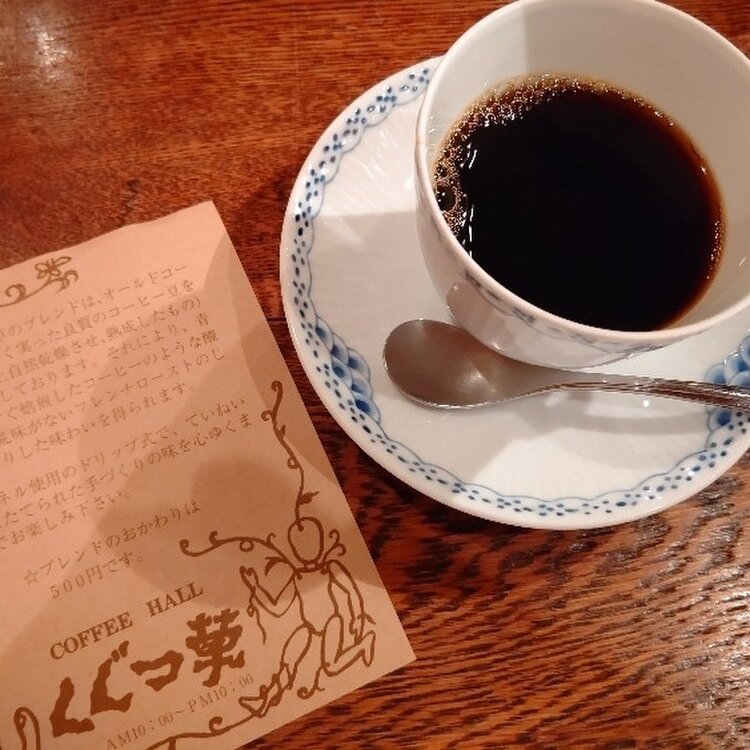 のブレンドは、オールドコー
く実った良質のコーヒー豆を
自然乾燥させ、熟成したもの)
しております。それにより、青
く焙煎したコーヒーのような酸
味がないフレンチローストのし
りした味わいを得られます。
ネル使用のドリップ式で、ていねい
たてられた手づくりの味を心ゆくま
でお楽しみ下さい。
☆ブレンドのおかわりは
500円です。
COFFEE HALL
くぐつ草
AM10:00~PM10:00